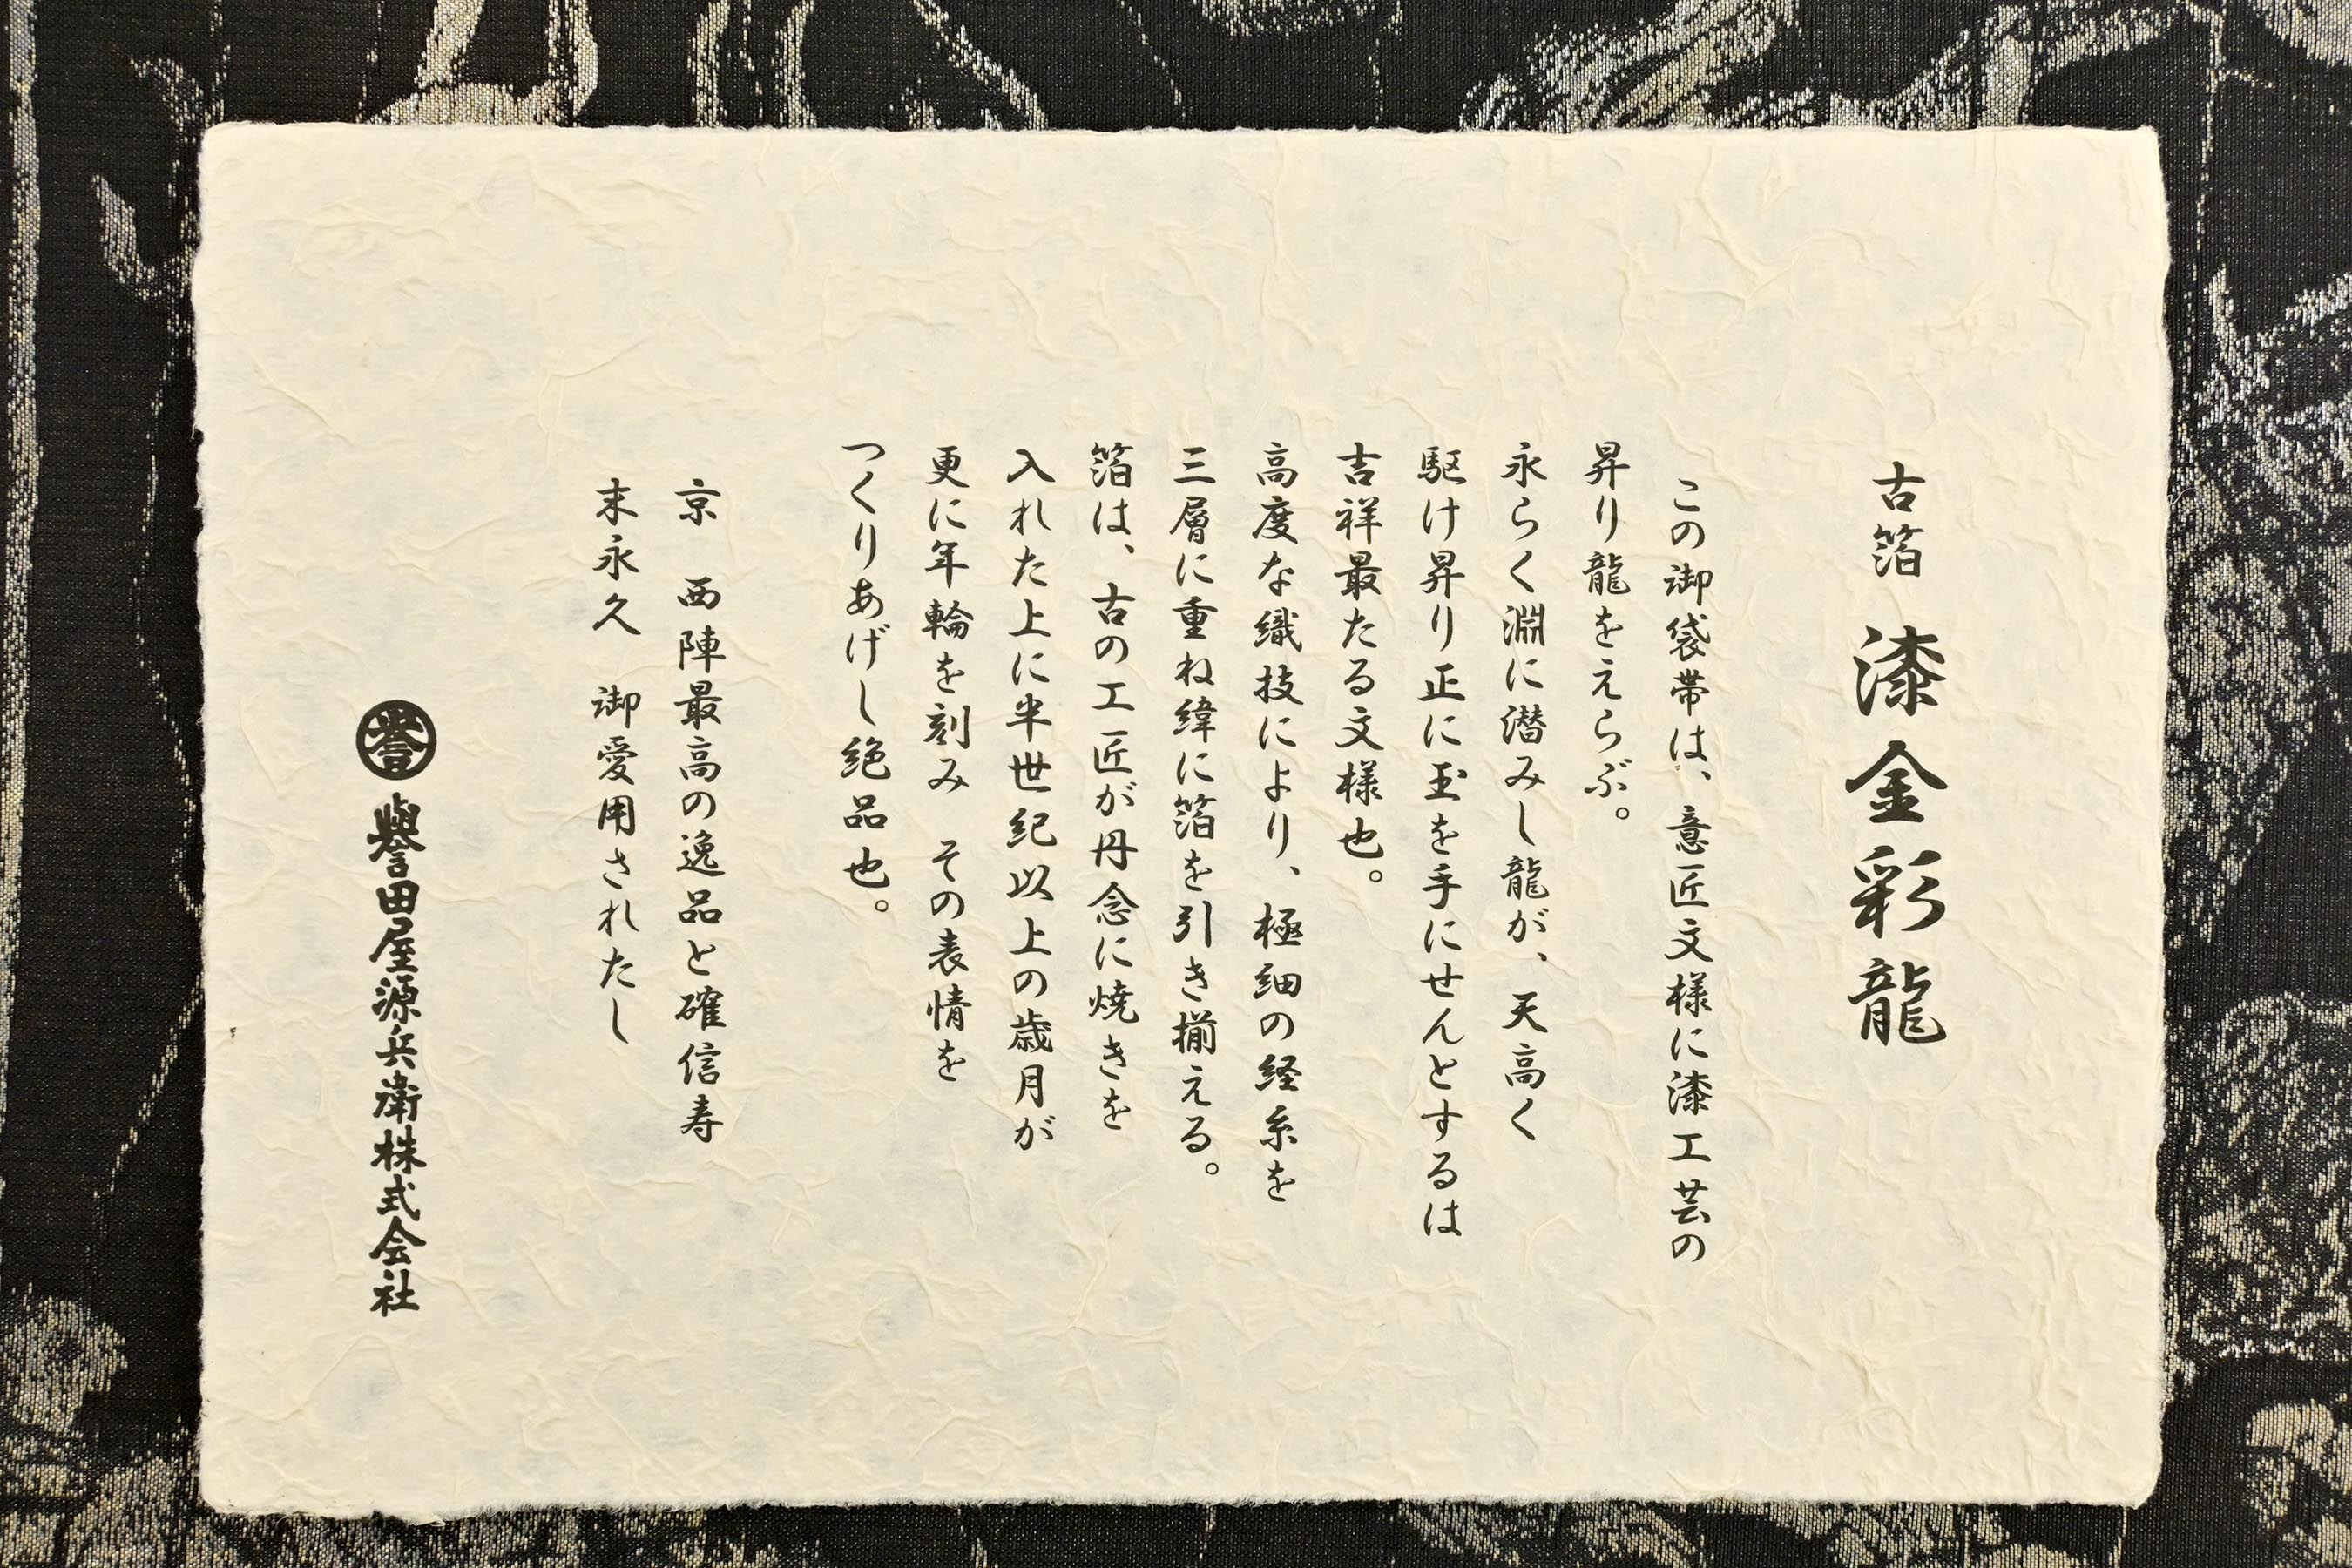 古箔 漆金彩龍
この御袋帯は、意匠文様に漆工芸の
昇り龍をえらぶ。
永らく淵に潜みし龍が、天高く
駆け昇り正に玉を手にせんとするは
吉祥最たる文様也。
高度な織技により、極細の経糸を
三層に重ね緯に箔を引き揃える。
箔は、古の工匠が丹念に焼きを
入れた上に半世紀以上の歳月が
更に年輪を刻み　その表情を
つくりあげし絶品也。
京　西陣最高の逸品と確信寿
末永久　御愛用されたし
誉 譽田屋源兵衛株式会社